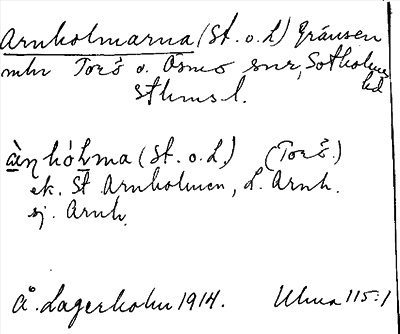 Arnholmarna (St. o. L) gränsen
mlr Torö o. Ösmo snr, Sotholms
hd
Sthms l.
àṇhól̥ma (St. o. L) (Torö.)
ek. St Arnholmen, L. Arnh.
ej. Arnh.
Å. Lagerholm 1914. Uhma 115:1